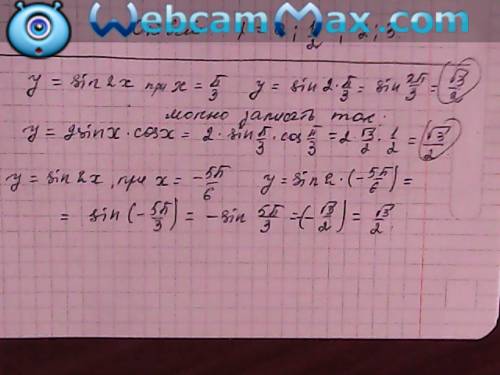 WebcamMax.com
1/2 ; 2 ; 3
y = sin 2x при x = π/3 y = sin 2·π/3 = sin 2π/3 = √3/2
можно записать так:
y = 2sinx·cosx = 2·sin π/3·cos π/3 = 2·√3/2·1/2 = √3/2
y = sin 2x, при x = -5π/6 y = sin 2·(-5π/6) =
= sin(-5π/3) = -sin 5π/3 = -(-√3/2) = √3/2